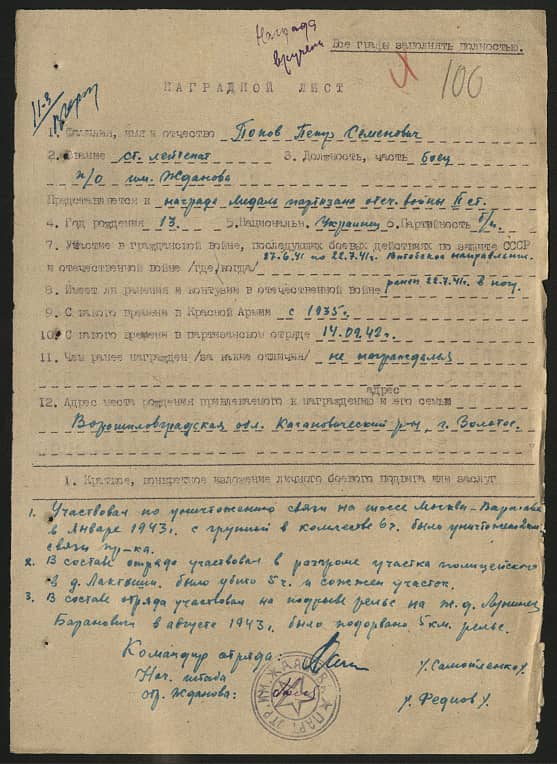 Награда
вручена
Все графы заполнять полностью.
100
НАГРАДНОЙ ЛИСТ
1. Фамилия, имя и отчество Попов Петр Семенович
2. Звание ст. лейтенат 3. Должность, часть боец
п/о им. Жданова
Представляется к награде Медаль партизана отеч. войны II ст.
4. Год рождения 13. 5. Национальн. Украинец 6. Партийность б/п.
7. Участие в гражданской войне, последующих боевых действиях по защите СССР
и отечественной войне /где, когда/ 27.6.41 по 22.7.41г. Витебское направление.
8. Имеет ли ранения и контузии в отечественной войне ранен 22.7.41г. в ногу.
9. С какого времени в Красной Армии с 1935г.
10. С какого времени в партизанском отряде 14.09.42г.
11. Чем ранее награжден /за какие отличия/ не награждался
адрес
12. Адрес места рождения привлекаемого к награждению и его семьи
Ворошиловградская обл. Кагановический р-н, г. Золотое.
1. Краткое, конкретное изложение личного боевого подвига или заслуг
1. Участвовал по уничтожению связи на шоссе Москва-Варшава
в Январе 1943г. с группой в количестве 6ч. было уничтожено
связи пр-ка.
2. В составе отряда участвовал в разгроме участка полицейского
в д. было убито 5ч. и сожжен участок.
3. В составе отряда участвовал на подрыве рельс на ж.д. Лунинец
Баранович в августе 1943г. было подорвано 5км. рельс.
Командир отряда: /Самойленко/.
Нач. штаба
отр. Жданова: /Федков/.
ПАРТ. ОТР. ИМ. ЖДАНОВА